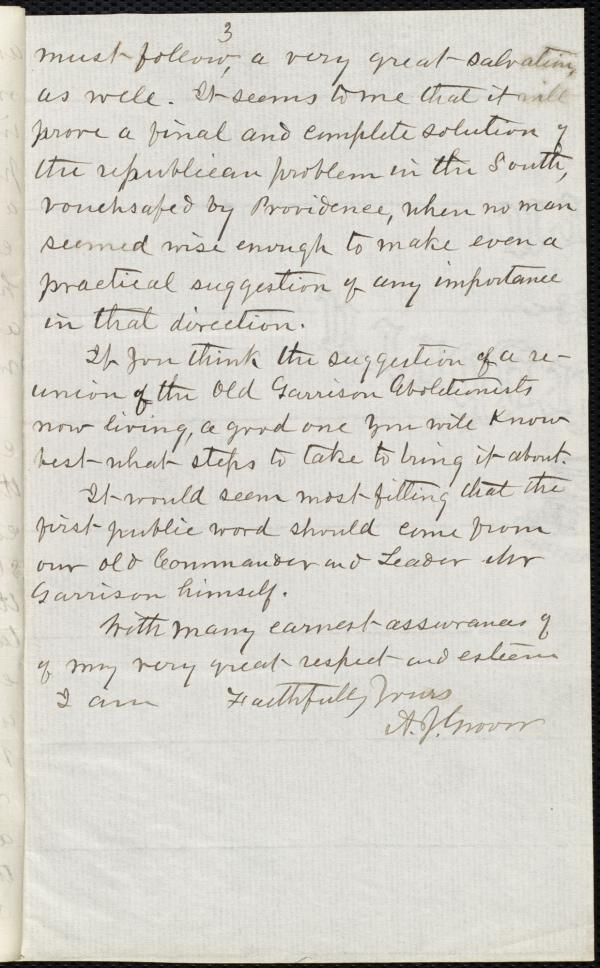 3
must follow, a very great salvation,
as well. It seems to me that it will
prove a final and complete solution of
the republican problem in the South,
vouchsafed by Providence, when no man
seemed wise enough to make even a
practical suggestion of any importance
in that direction.
If you think the suggestion of a re-
union of the Old Garrison Abolitionists
now living, a good one you will know
best what steps to take to bring it about.
It would seem most fitting that the
first public word should come from
our old Commander and Leader Mr
Garrison himself.
With many earnest assurances of
of my very great respect and esteem
I am Faithfully Yours
A. J. Grover